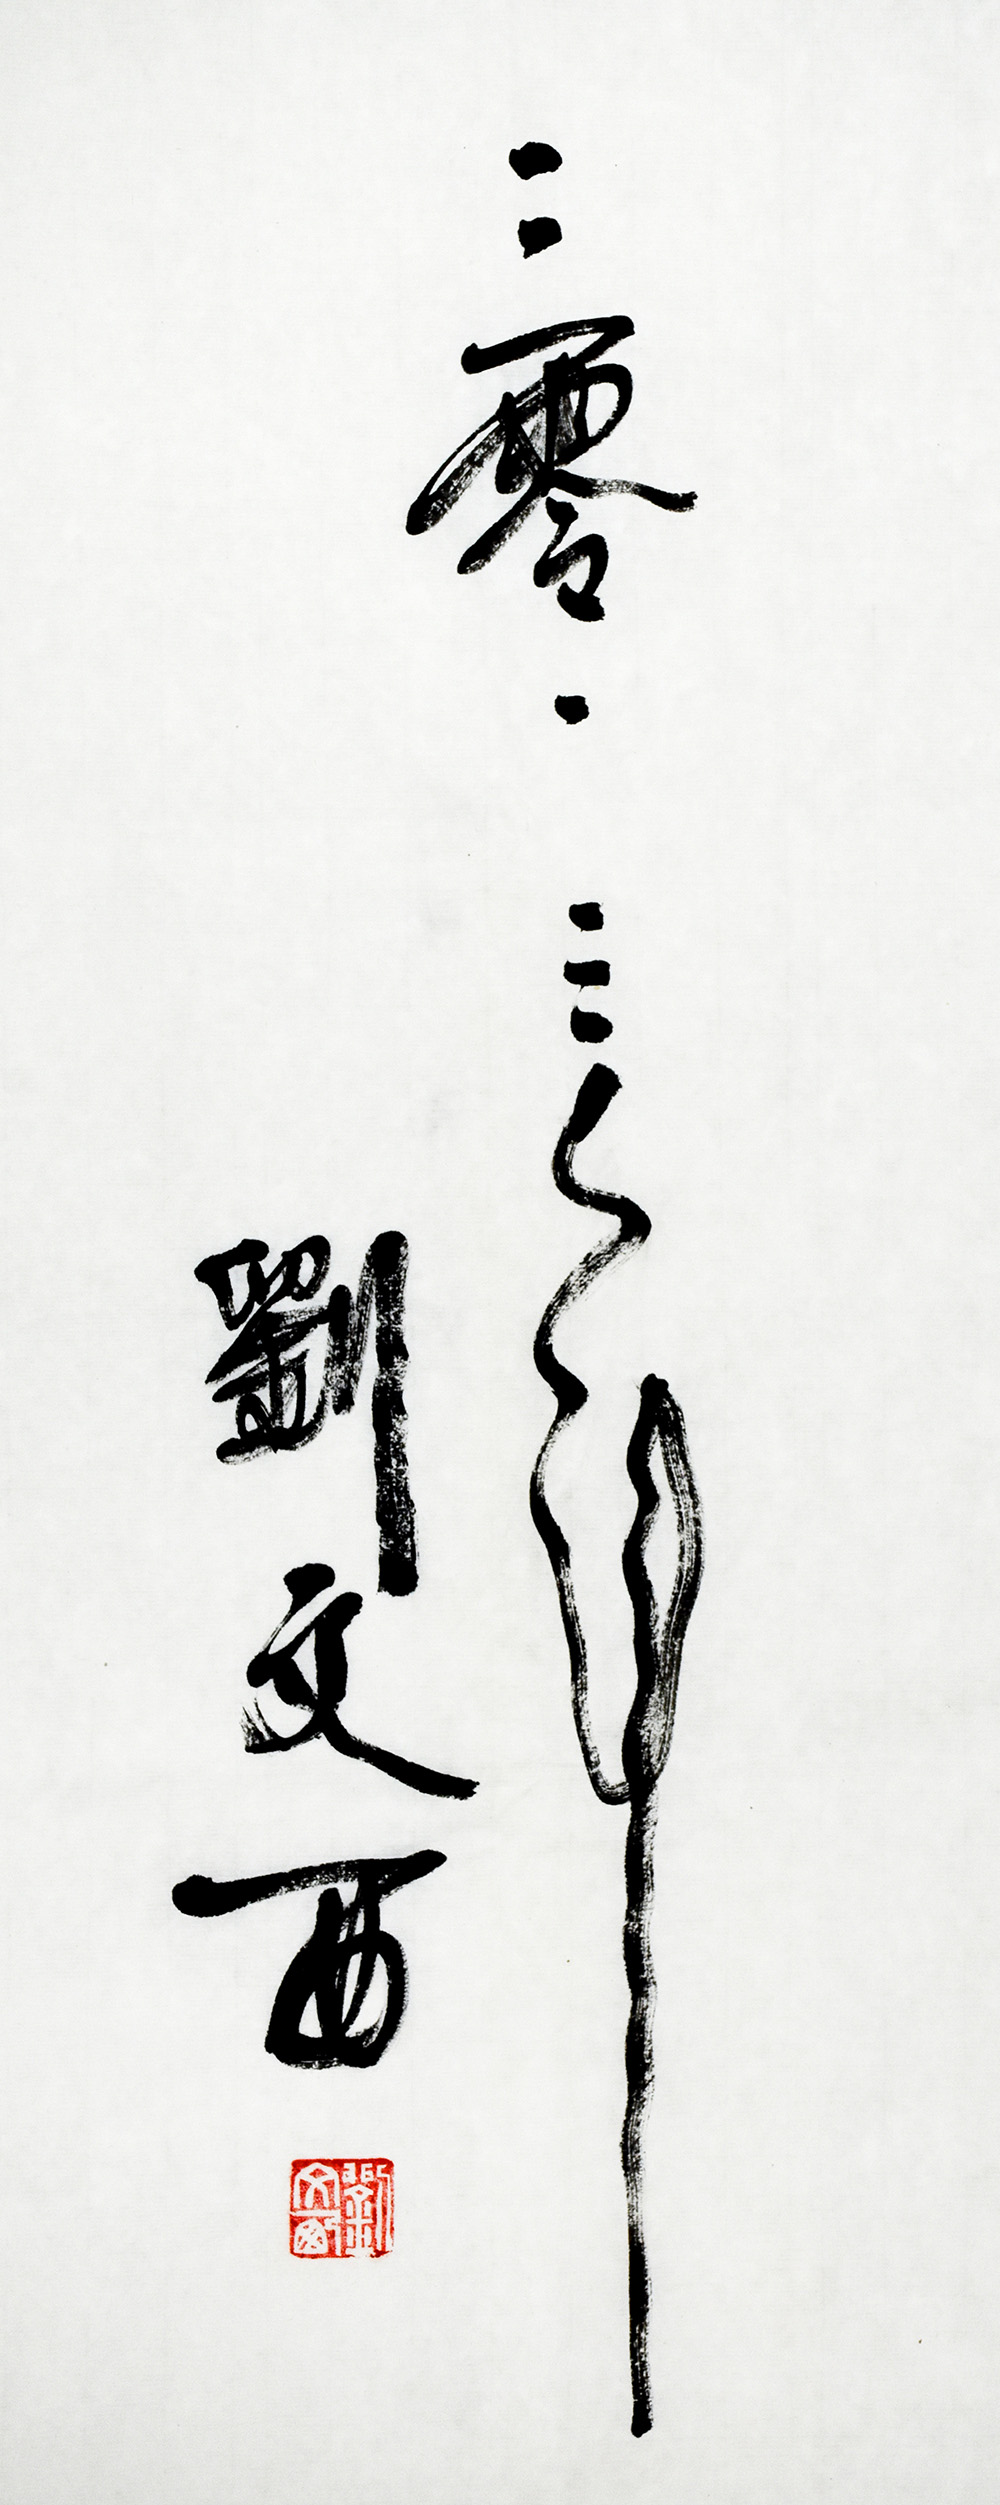 二零一三
劉文西
劉文西